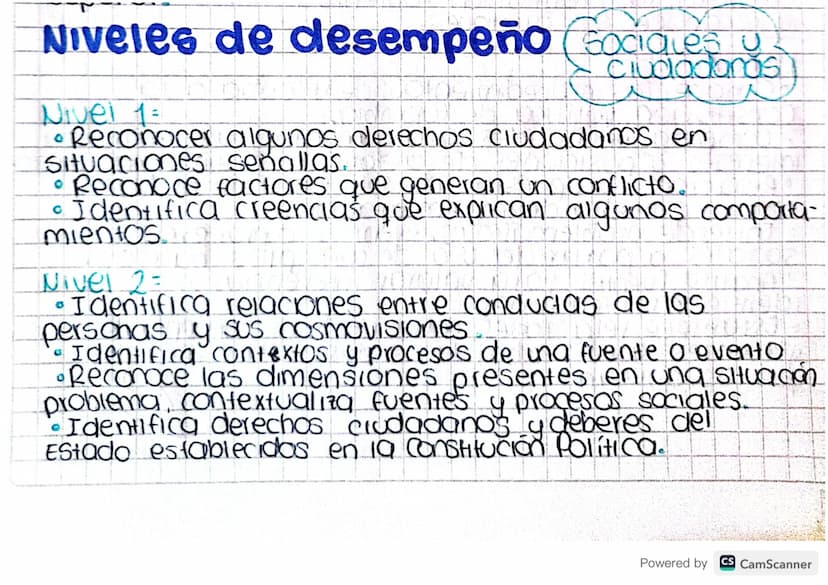 Niveles de desempeño
Sociales y
ciudadanas
Nivel 1:
• Reconocer algunos derechos ciudadanos en
situaciones senallas.
• Reconoce factores que generan un conflicto.
• Identifica creencias que explican algunos comporta-
mientos.
Nivel 2:
• Identifica relaciones entre conductas de las
personas y sus cosmovisiones.
• Identifica contextos y procesos de una fuente o evento
• Reconoce las dimensiones presentes en una situación
problema, contextualiza fuentes y procesos sociales.
• Identifica derechos ciudadanos y deberes del
Estado establecidos en la Constitución Política.
Powered by CS CamScanner